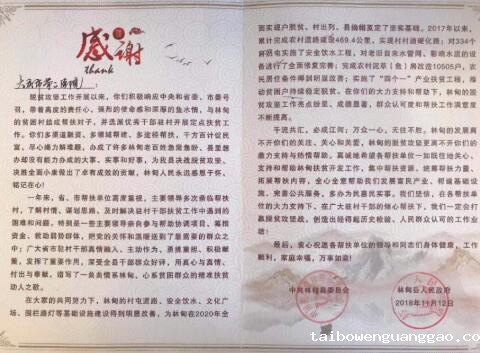 感谢
thank
大庆市第二医院：
脱贫攻坚工作开展以来，你们积极响应中央和省委、市委号
召，带着高度的责任心、强烈的使命感和深厚的鱼水情，与林甸
的贫困村结成帮扶对子，并选派优秀干部驻村开展定点扶贫工
作。你们多渠道融资、多领域帮建、多途径帮扶，千方百计促民
富，尽心竭力解难题，办成了许多林甸老百姓急需急盼、县里想
办却没有能力办成的大事、实事和好事，为我县决战脱贫攻坚、
决胜全面小康做出了卓有成效的贡献，林甸人民永远感恩于怀、
铭记在心！
一年来，省、市帮扶单位高度重视，主要领导多次亲临帮扶
村，了解村情、谋划思路，及时解决驻村干部扶贫工作中遇到的
困难和问题，特别是一些主要领导亲自参与帮助协调项目、筹措
资金、救助弱势群体，把党的关怀和温暖送到了最需要的群众之
中；广大省市驻村干部真情融入、主动作为、勇挑重担、积极献
策，发挥了重要作用，深受全县干部群众好评，用真心与真情、
付出与奉献，谱写了一曲真情系林甸、心系贫困群众的精准扶贫
动人之歌。
在大家的共同努力下，林甸的村屯道路、安全饮水、文化广
场、围栏路灯等基础设施建设得到明显改善，为林甸在2020年全
面实现户脱贫、村出列、县摘帽奠定了坚实基础。2017年以来，
累计完成农村道路建设469.4公里，实现村村通硬化路；对334个
村屯实施了安全饮水工程，对老旧自来水管网、影响水质的设备
进行了全面修复完善；完成农村泥草（危）房改造10505户，农
民居住条件得到明显改善；实施了“四个一”产业扶贫工程，推动
贫困户持续稳定脱贫。在你们的大力支持和帮助下，林甸的脱
贫攻坚工作亮点纷呈、成绩显著，群众认可度和帮扶工作满意度
不断提高。
千流共汇，必成江河；万众一心，无往不胜。林甸的发展离
不开你们的关注、关心和关爱，林甸的脱贫攻坚更离不开你们的
鼎力支持与热情帮助。真诚地希望各帮扶单位一如既往地关心、
支持和帮助林甸扶贫开发工作，集中帮扶资源，统筹帮扶力量，
拓展帮扶内容，全心全意帮助我们发展富民产业、帮建基础设
施、完善公共服务，多办为民惠民实事。我们坚信，在各帮扶单位
的大力支持下，在广大驻村干部的倾心帮扶下，我们一定会打
赢脱贫攻坚战，创造出经得起历史检验、人民群众认可的工作业
绩！
最后，衷心祝愿各帮扶单位的领导和同志们身体健康，工作
顺利，家庭幸福，万事如意！
中共林甸县委员会
林甸县人民政府
2018年11月12日
taibowenguanggao.com